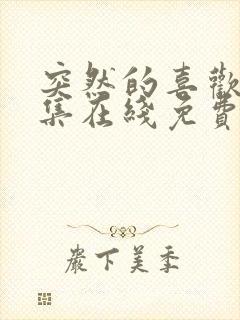 突然的喜歡
集在綫免費
嚴下美季